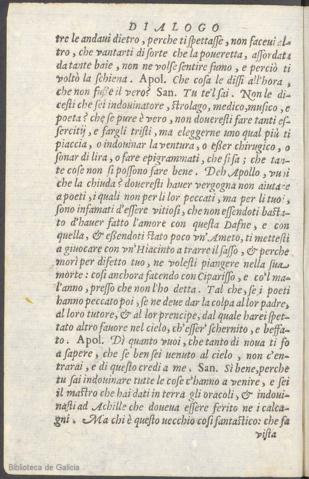 DIALOGO
tre le andaui dietro, perche ti spettasse, non faceui al-
tro, che vantarti di sorte che la poueretta, assordata
da tante baie, non ne volse sentire fumo, e perciò ti
voltò la schiena. Apol. Che cosa le dissi all'hora,
che non fosse il vero? San. Tu te'l sai. Non le di-
cesti che sei indouinatore, strolago, medico, musico, e
poeta? che se pure è vero, non doueresti fare tanti es-
sercitij, e fargli tristi, ma eleggerne uno qual più ti
piaccia, o indouinar la ventura, o esser chirugico, o
sonar di lira, o fare epigrammati, che si sa; che tan-
te cose non si possono fare bene. Deh Apollo, vu i
che la chiuda? doueresti hauer vergogna non aiutare
a poeti, i quali non per li lor peccati, ma per li tuoi,
sono infamati d'essere vitiosi, che non essendoti basta-
to d'hauer fatto l'amore con questa Dafne, e con
quella, & essendoti stato poco vn'Ameto, ti mettesti
a giuocare con vn'Hiacinto a trarre il sasso, & perche
morì per difetto tuo, ne volesti piangere nella sua
morte: così anchora facendo con Ciparisso, e co'l ma-
l'anno, presso che non l'ho detta. Tal che, se i poeti
hanno peccato poi, se ne deue dar la colpa al lor padre,
al loro tutore, & al lor prencipe, dal quale harei spet-
tato altro fauore nel cielo, ch'esser' schernito, e beffa-
to. Apol. Dì quanto vuoi, che tanto di noua ti fo
a sapere, che se ben sei uenuto al cielo, non c'en-
trarai, e di questo credi a me. San. Sì bene, perche
tu sai indouinare tutte le cose c'hanno a venire, e sei
il mastro che hai dati in terra gli oracoli, & indoui-
nasti ad Achille che doueua essere ferito ne i calca-
gni. Ma chi è questo uecchio così fantastico: che fa
vista
Biblioteca de Galicia